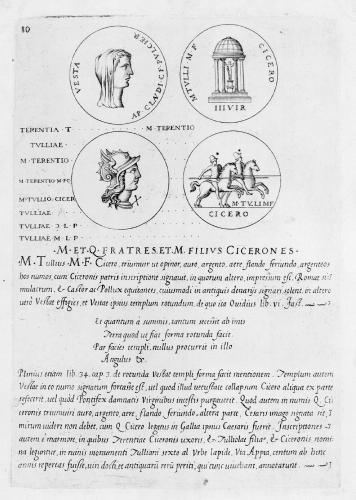 80
VESTA
AP. CLAVDI. C. F. PVLCHER
M. TVLLI. M F
CICERO
III VIR
TERENTIA · T
M · TERENTIO
TVLLIAE
M · TERENTIO
M · TERENTIO M · F C
M · TVLLIO · CICER
TVLLIAE
TVLLIAE · Ɔ · L · P
TVLLIAE · M · L · P
X
M · TVLI MF
CICERO
· M · ET · Q · FRATRES · ET · M · FILIVS CICERONES ·
· M · Tullius · M · F · Cicero, triumuir ut opinor, auro, argento, aere, flando feriundo, argenteos
hos numos, cum Ciceronis patris inscriptione signauit, in quorum altero, impressum est, Romae si-
mulacrum, & Castor ac Pollux equitantes, cuiusmodi in antiquis denarijs signari solent, in altero
uerò Vestae effigies, et Vestae ipsius templum rotundum, de quo ita Ouidius lib. vi. Fast.
Et quantum à summis, tantum secessit ab imis
Terra quod ut fiat forma rotunda facit.
Par facies templi, nullus procurrit in illo
Angulus &c.
Plinius etiam lib. 34. cap 3. de rotunda Vestae templi forma facit mentionem. Templum autem
Vestae in eo numo signatum forasse est, uel quod illud uetustate collapsum Cicero aliqua ex parte
refecerit, uel quòd Pontifex damnatis Virginibus incestus purgauerit. Quod autem in numis Q. Ci-
ceronis triumuiri auro, argento, aere, flando, feriundo, altera parte, Caesaris imago signata sit, n
mirum uideri non debet, cum Q. Cicero legatus in Gallia ipsius Caesaris fuerit. Inscriptiones
autem è marmore, in quibus Terentiae Ciceronis uxoris, & Tulliolae filiae, & Ciceronis nomi
na leguntur, in ruinis monumenti Tulliani sexto ab Vrbe lapide, Via Appia, centum ab hinc
annis repertas fuisse, uiri docti, et antiquarij rerū periti, qui tunc uiuebant, annotarunt.